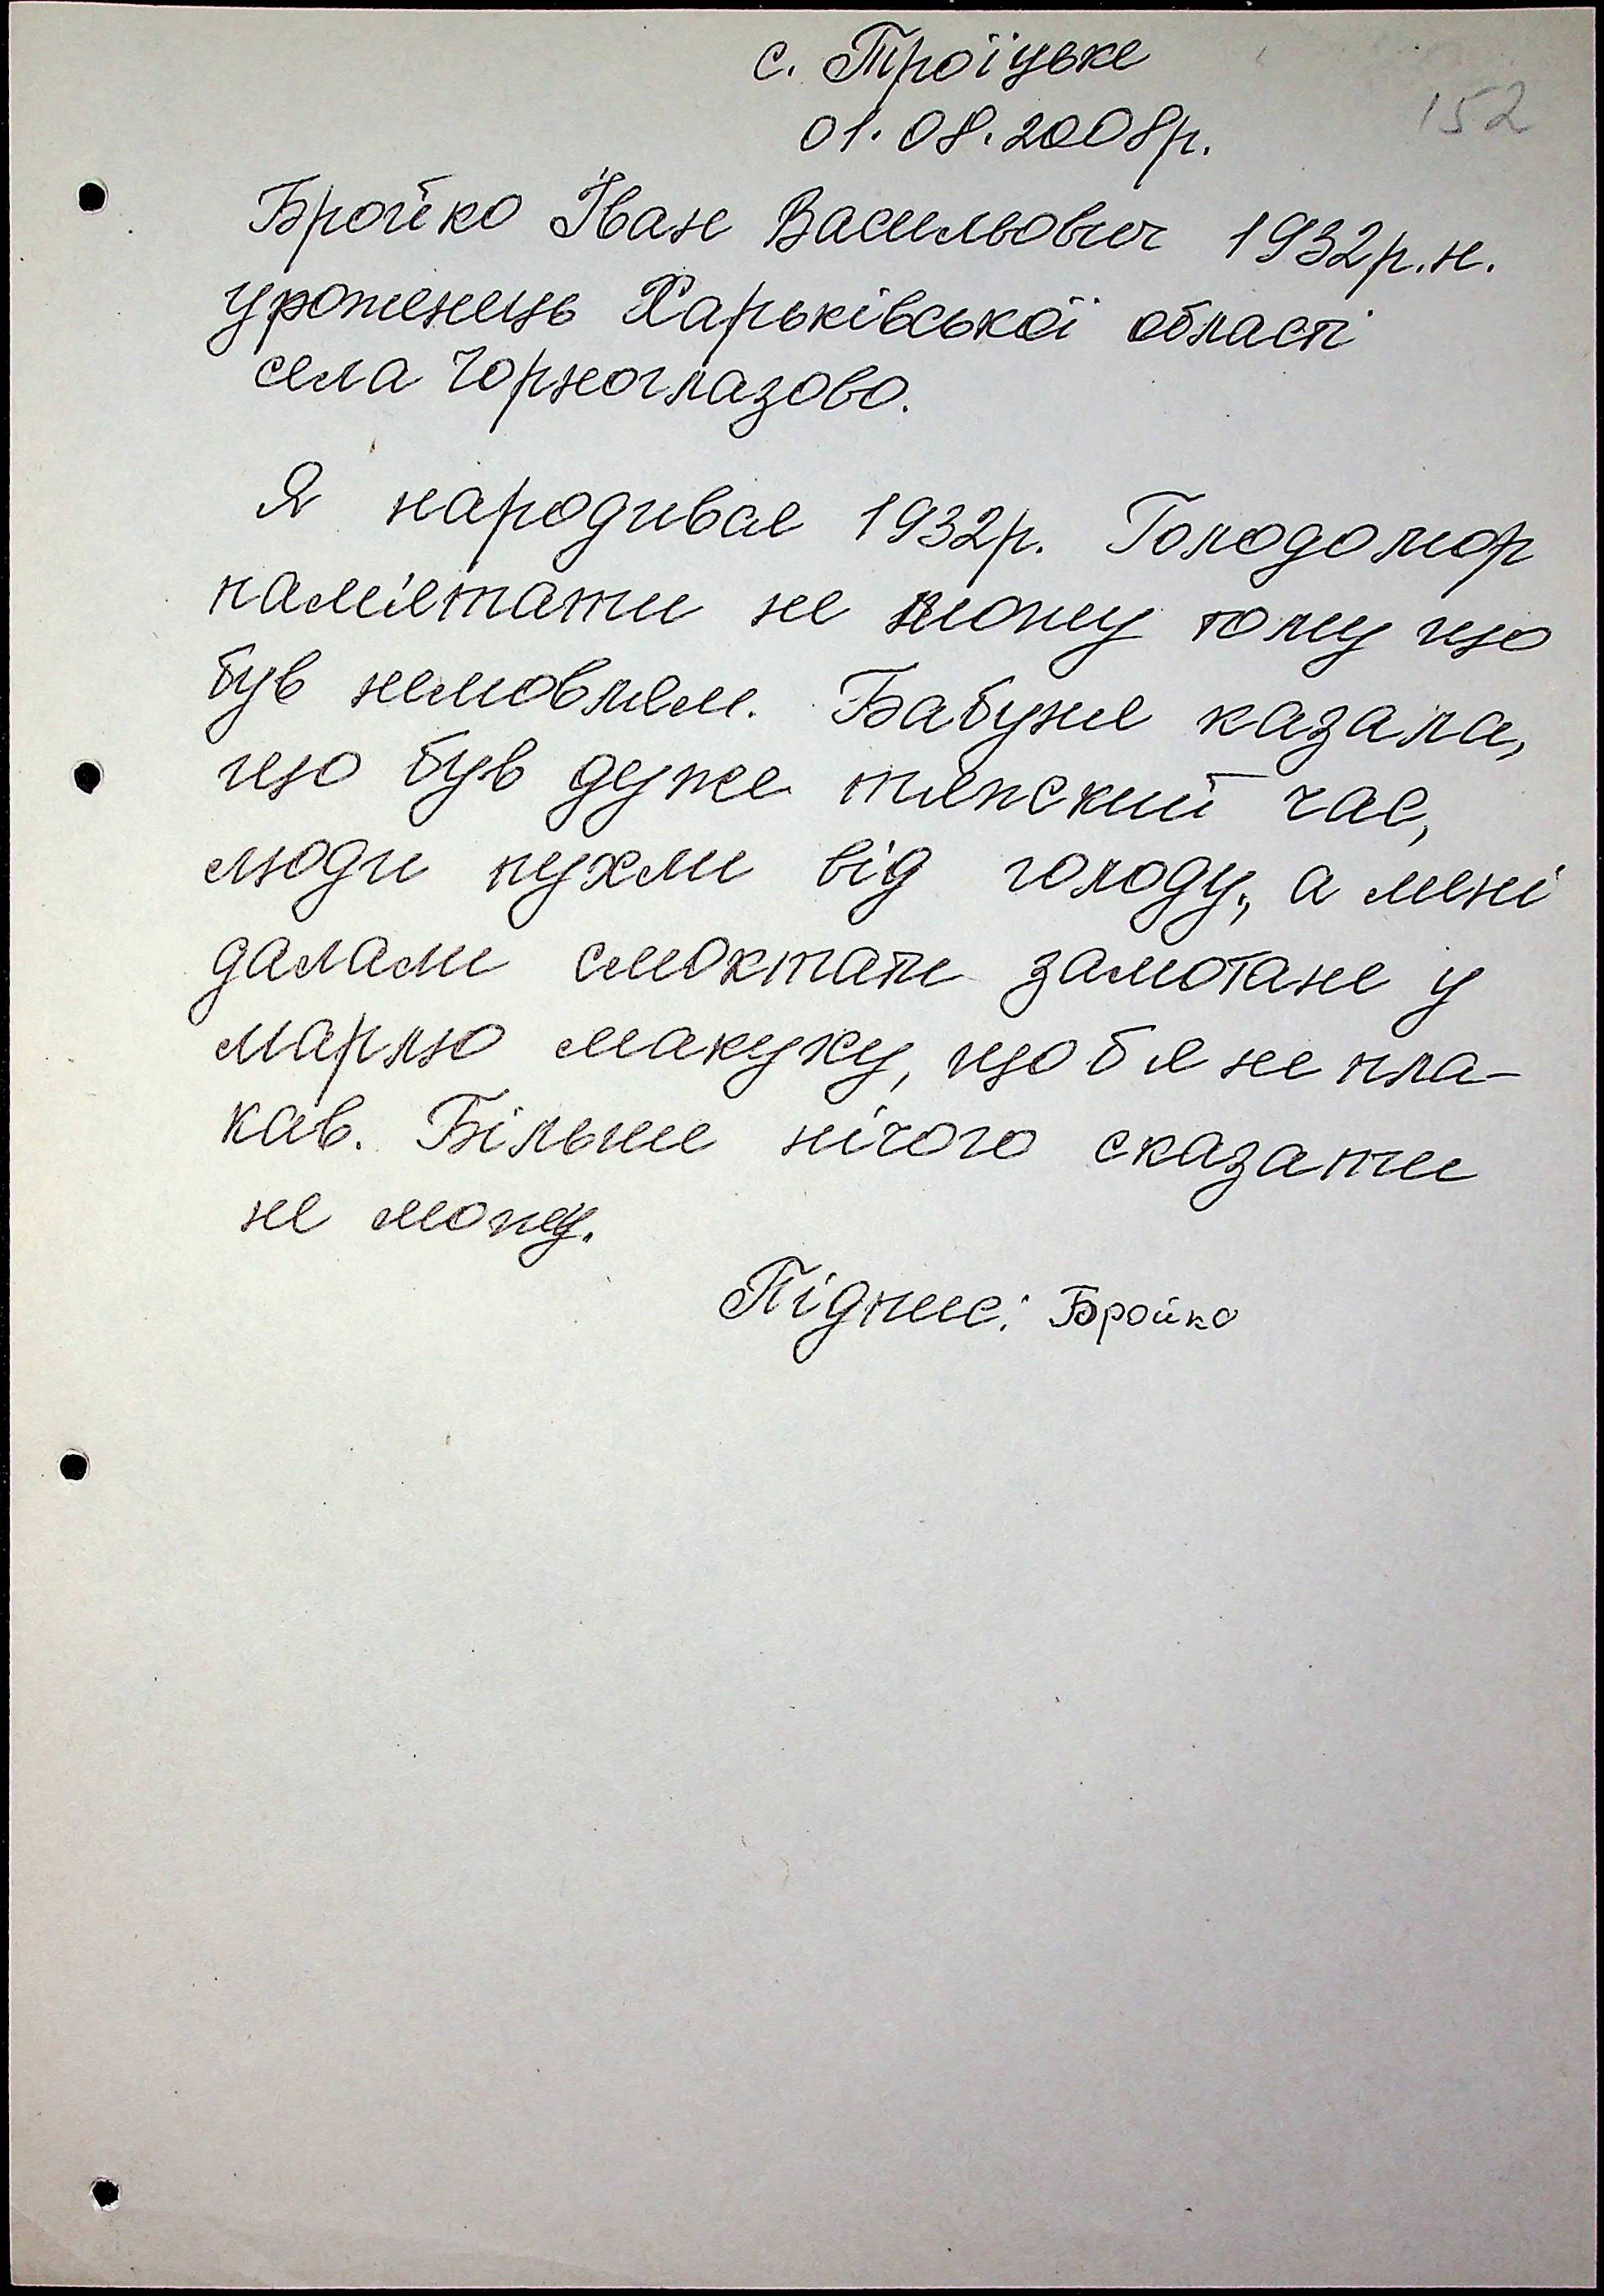 с. Троїцьке
01.08.2008р.
152
Бройко Іван Васильович 1932р.н.
уроженець Харьківської області
села Чорноглазово.
Я народився 1932р. Голодомор
пам'ятати не можу тому що
був немовлям. Бабуня казала,
що був дуже тяжский час,
люди пухли від голоду, а мені
давали смоктати замотане у
марлю макуху, щоб я не пла-
кав. Більше нічого сказати
не можу.
Підпис: Бройко